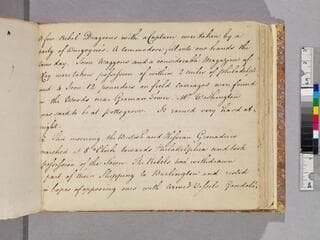 A few Rebel Dragoons with a Captain were taken by a
party of Dragoons. A Commodore fell into our hands the
same day. Some Waggons and a considerable Magazine of
Hay were taken possession of within 2 miles of Philadelph
and 4 Iron 12 pounders on field carriages were found
in the Woods near German Town. Mr. Washington
was said to be at pottsgrove. It rained very hard at
night.
This morning the British and Hessian Grenadiers
marched at 8 o'Clock towards Philadelphia and took
possession of the Town. The Rebels had withdrawn
part of their Shipping to Burlington and
in hopes of opposing ours with armed Vessels Gondolas,